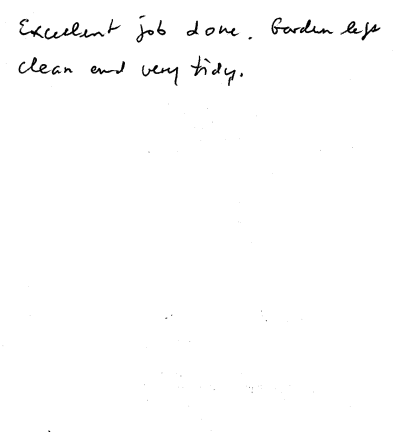 Excellent job done. Garden left
clean and very tidy.